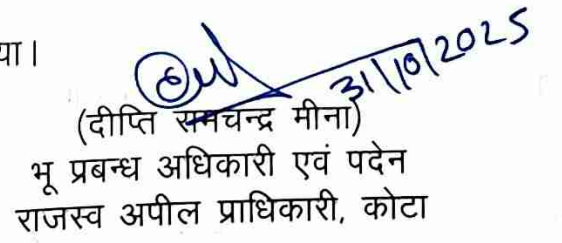 या।
31/10/2025
(दीप्ति रामचन्द्र मीना)
भू प्रबन्ध अधिकारी एवं पदेन
राजस्व अपील प्राधिकारी, कोटा